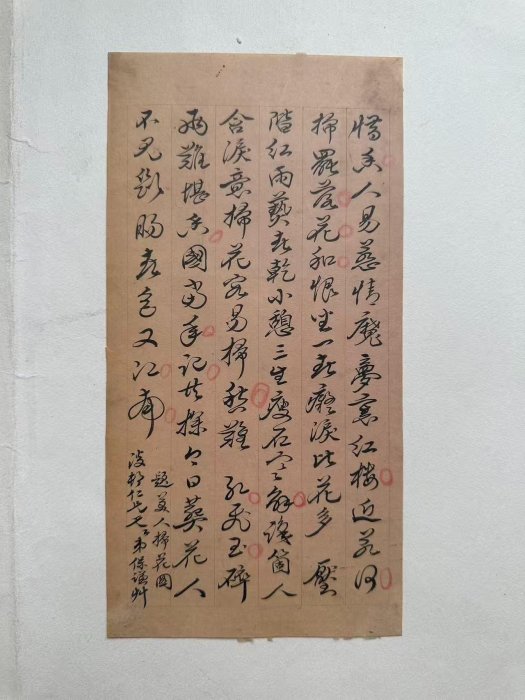 惜香人易惹情魔夢裏紅樓近若何
掃罷落花和恨坐一春癡淚比花多 壓
階紅雨乾小憩三生瘦石寒解識箇人
含淚意掃花容易掃愁難 紅飛玉碎
兩難堪香國當年記共探今日葬花人
不見斷腸春色又江南
題美人掃花圖
仁兄弟保艸